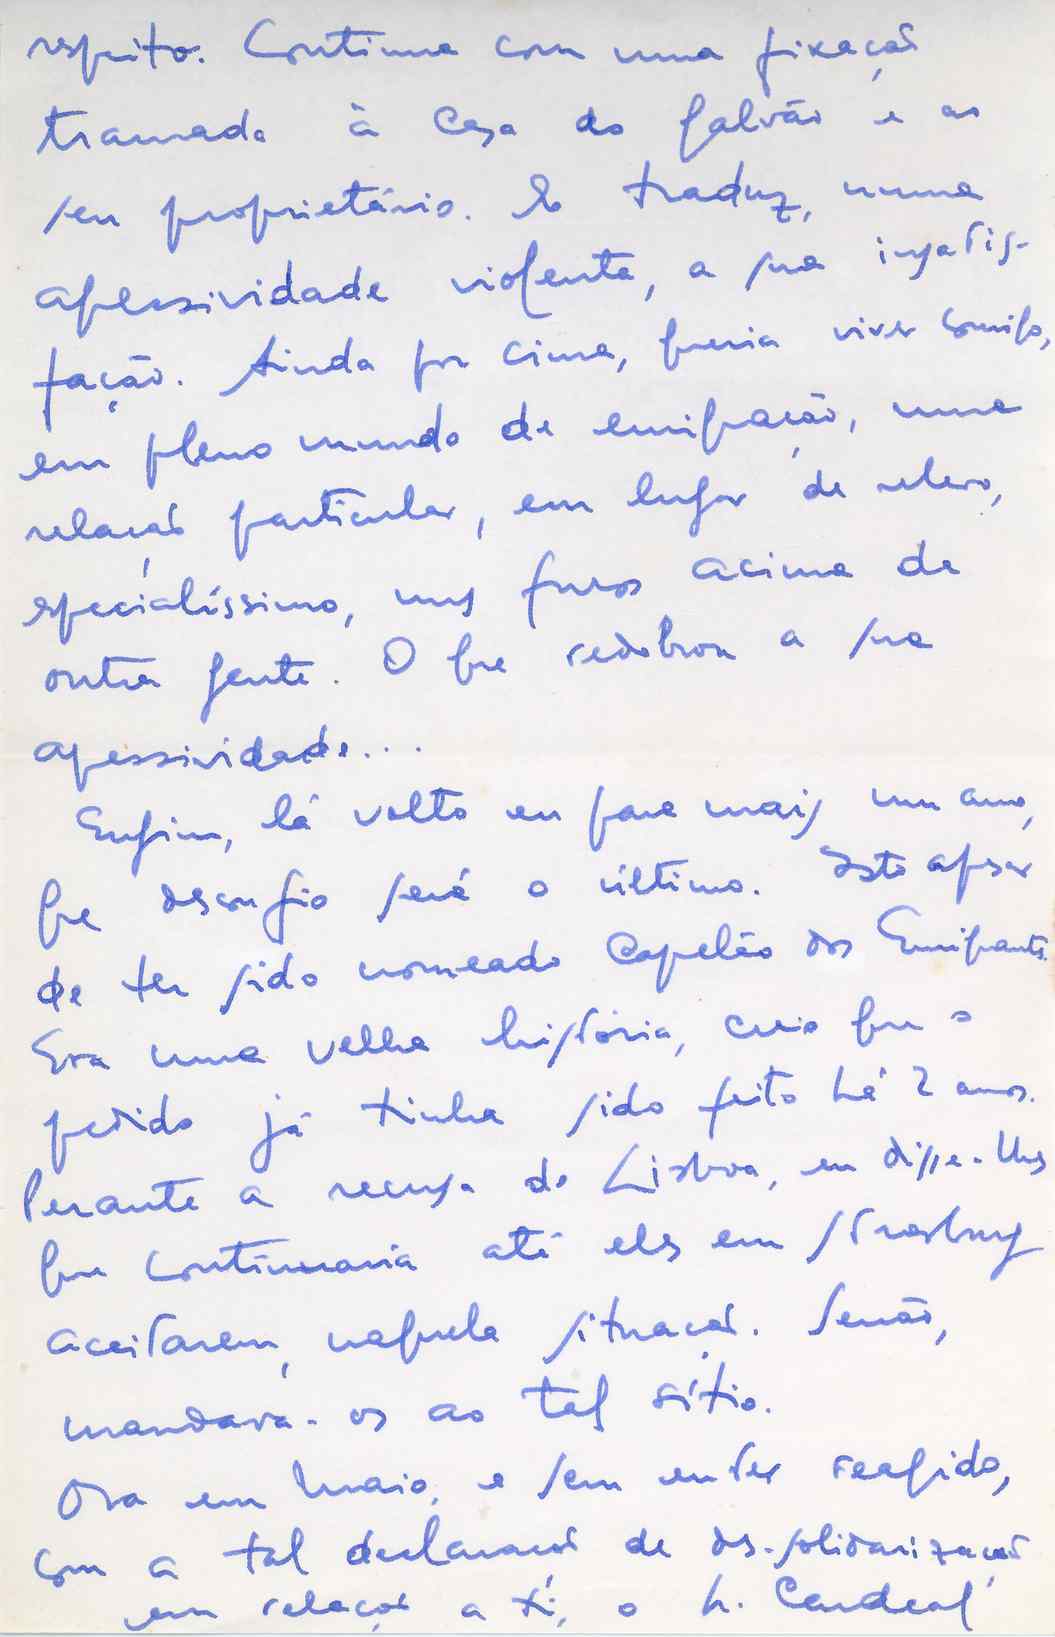 respeito. Continua com uma fixação
tramada à Casa do Galvão e ao
seu proprietário. E traduz, numa
agressividade violenta, a sua insatis-
fação. Ainda por cima, queria viver comigo,
em pleno mundo de emigração, uma
relação particular, em lugar de relevo,
especialíssimo, uns furos acima de
outra gente. O que redobrou a sua
agressividade...
Enfim, lá volto eu para mais um ano,
que desconfio será o último. Isto apesar
de ter sido nomeado Capelão dos Emigrantes.
Era uma velha história, creio que o
pedido já tinha sido feito há 2 anos.
Perante a recusa de Lisboa, eu disse-lhes
que continuaria até eles em Strasburg
aceitarem, naquela situação. Senão,
mandava-os ao tal sítio.
Ora em Maio, e sem eu ter reagido,
com a tal declaração de des-solidarização
em relação a ti, o S. Cardeal